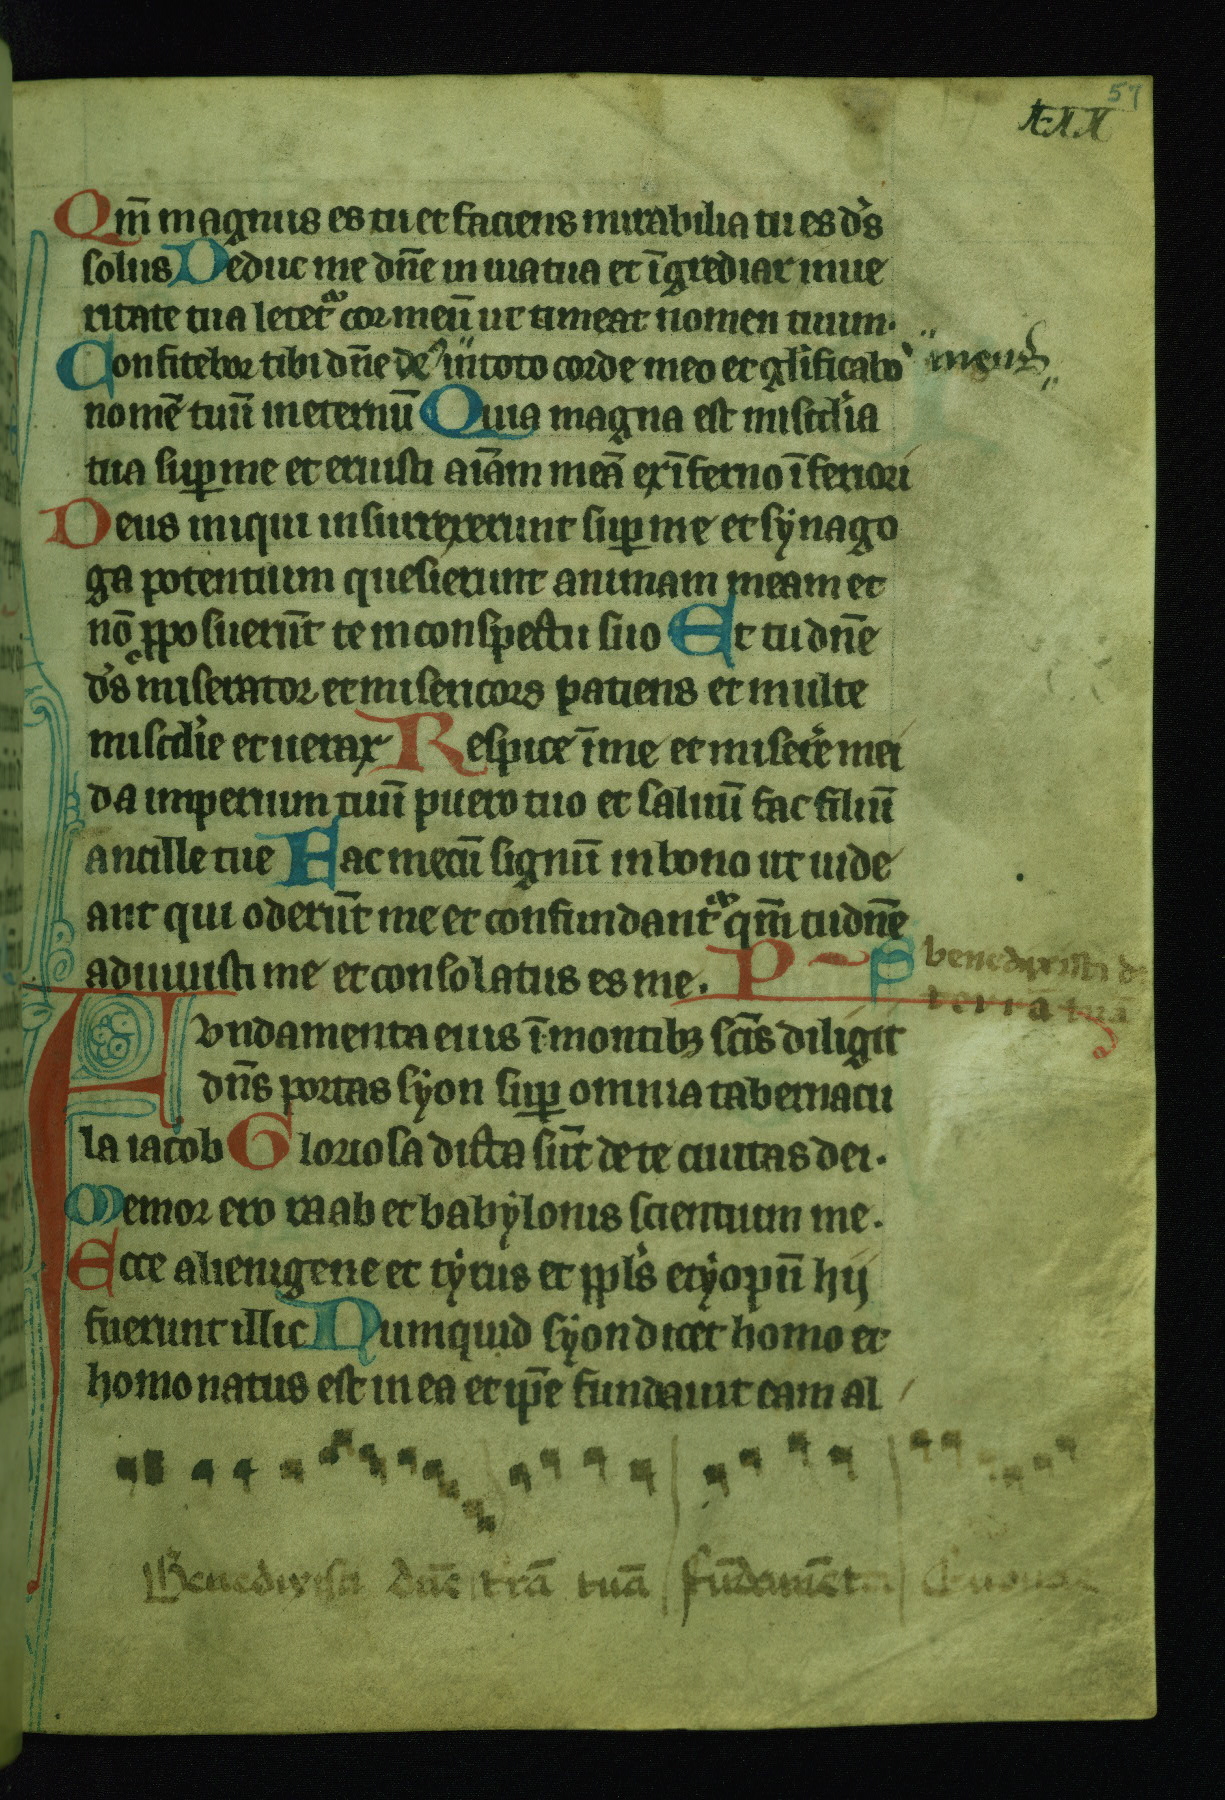 57
Qm̄ magnus es tu et faciens mirabilia tu es d's
solus Deduc me dn̄e in uia tua et īgrediar in ue
ritate tua letetᷓ cor meū ut timeat nomen tuum.
Confitebor tibi dn̄e de in toto corde meo et gl'ificabo meus
nomē tuū in eternū Quia magna est misc̄dia
tua suꝑ me et eruisti aīam meā ex īferno īferiori
Deus iniqui insurrexerunt suꝑ me et synago
ga potentium quesierunt animam meam et
nō ꝓposuerūt te in conspectu suo Et tu dn̄e
d's miserator et misericors patiens et multe
misc̄die et uerax Respice ī me et miserē mei
da imperium tuū puero tuo et saluū fac filiū
ancille tue Fac mecū signū in bono ut uide
ant qui oderūt me et confundantᷓ qm̄ tu dn̄e
adiuuisti me et consolatus es me. P P benedixisti d
terrā tuā
Fundamenta eius ī montibꝫ sc̄is diligit
dn̄s portas syon suꝑ omnia tabernacu
la iacob Gloriosa dicta sūt de te ciuitas dei.
Memor ero raab et babylonis scientium me.
Ecce alienigene et tyrus et ppl's etyopū hij
fuerunt illic Numquid syon dicet homo et
homo natus est in ea et ip̄e fundauit eam al
Benedixisti dn̄e trā tuā fūdamēta Euouae